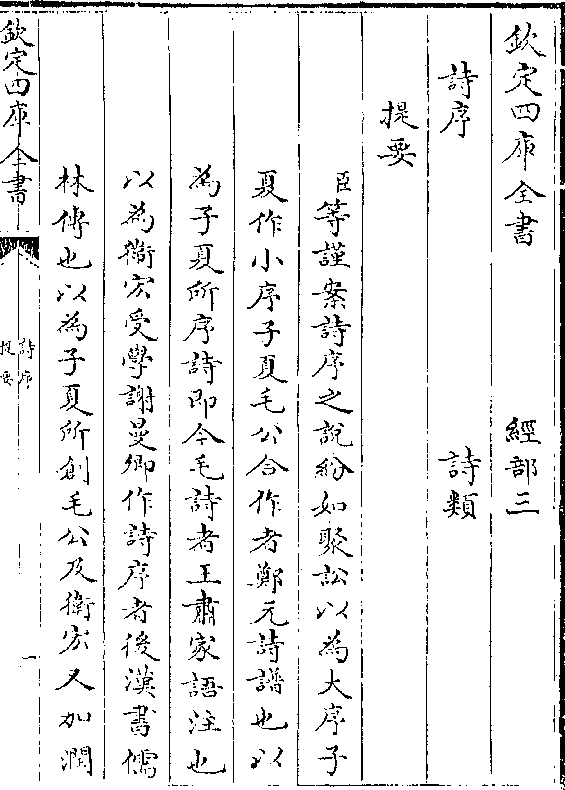 欽定四庫全書　經部三
詩序　詩類
提要
臣等謹案詩序之說紛如聚訟以為大序子
夏作小序子夏毛公合作者鄭元詩譜也以
為子夏所序詩即今毛詩者王肅家語注也
以為衞宏受學謝曼卿作詩序者後漢書儒
林傳也以為子夏所創毛公及衞宏又加潤
欽定四庫全書
詩序
提要
一